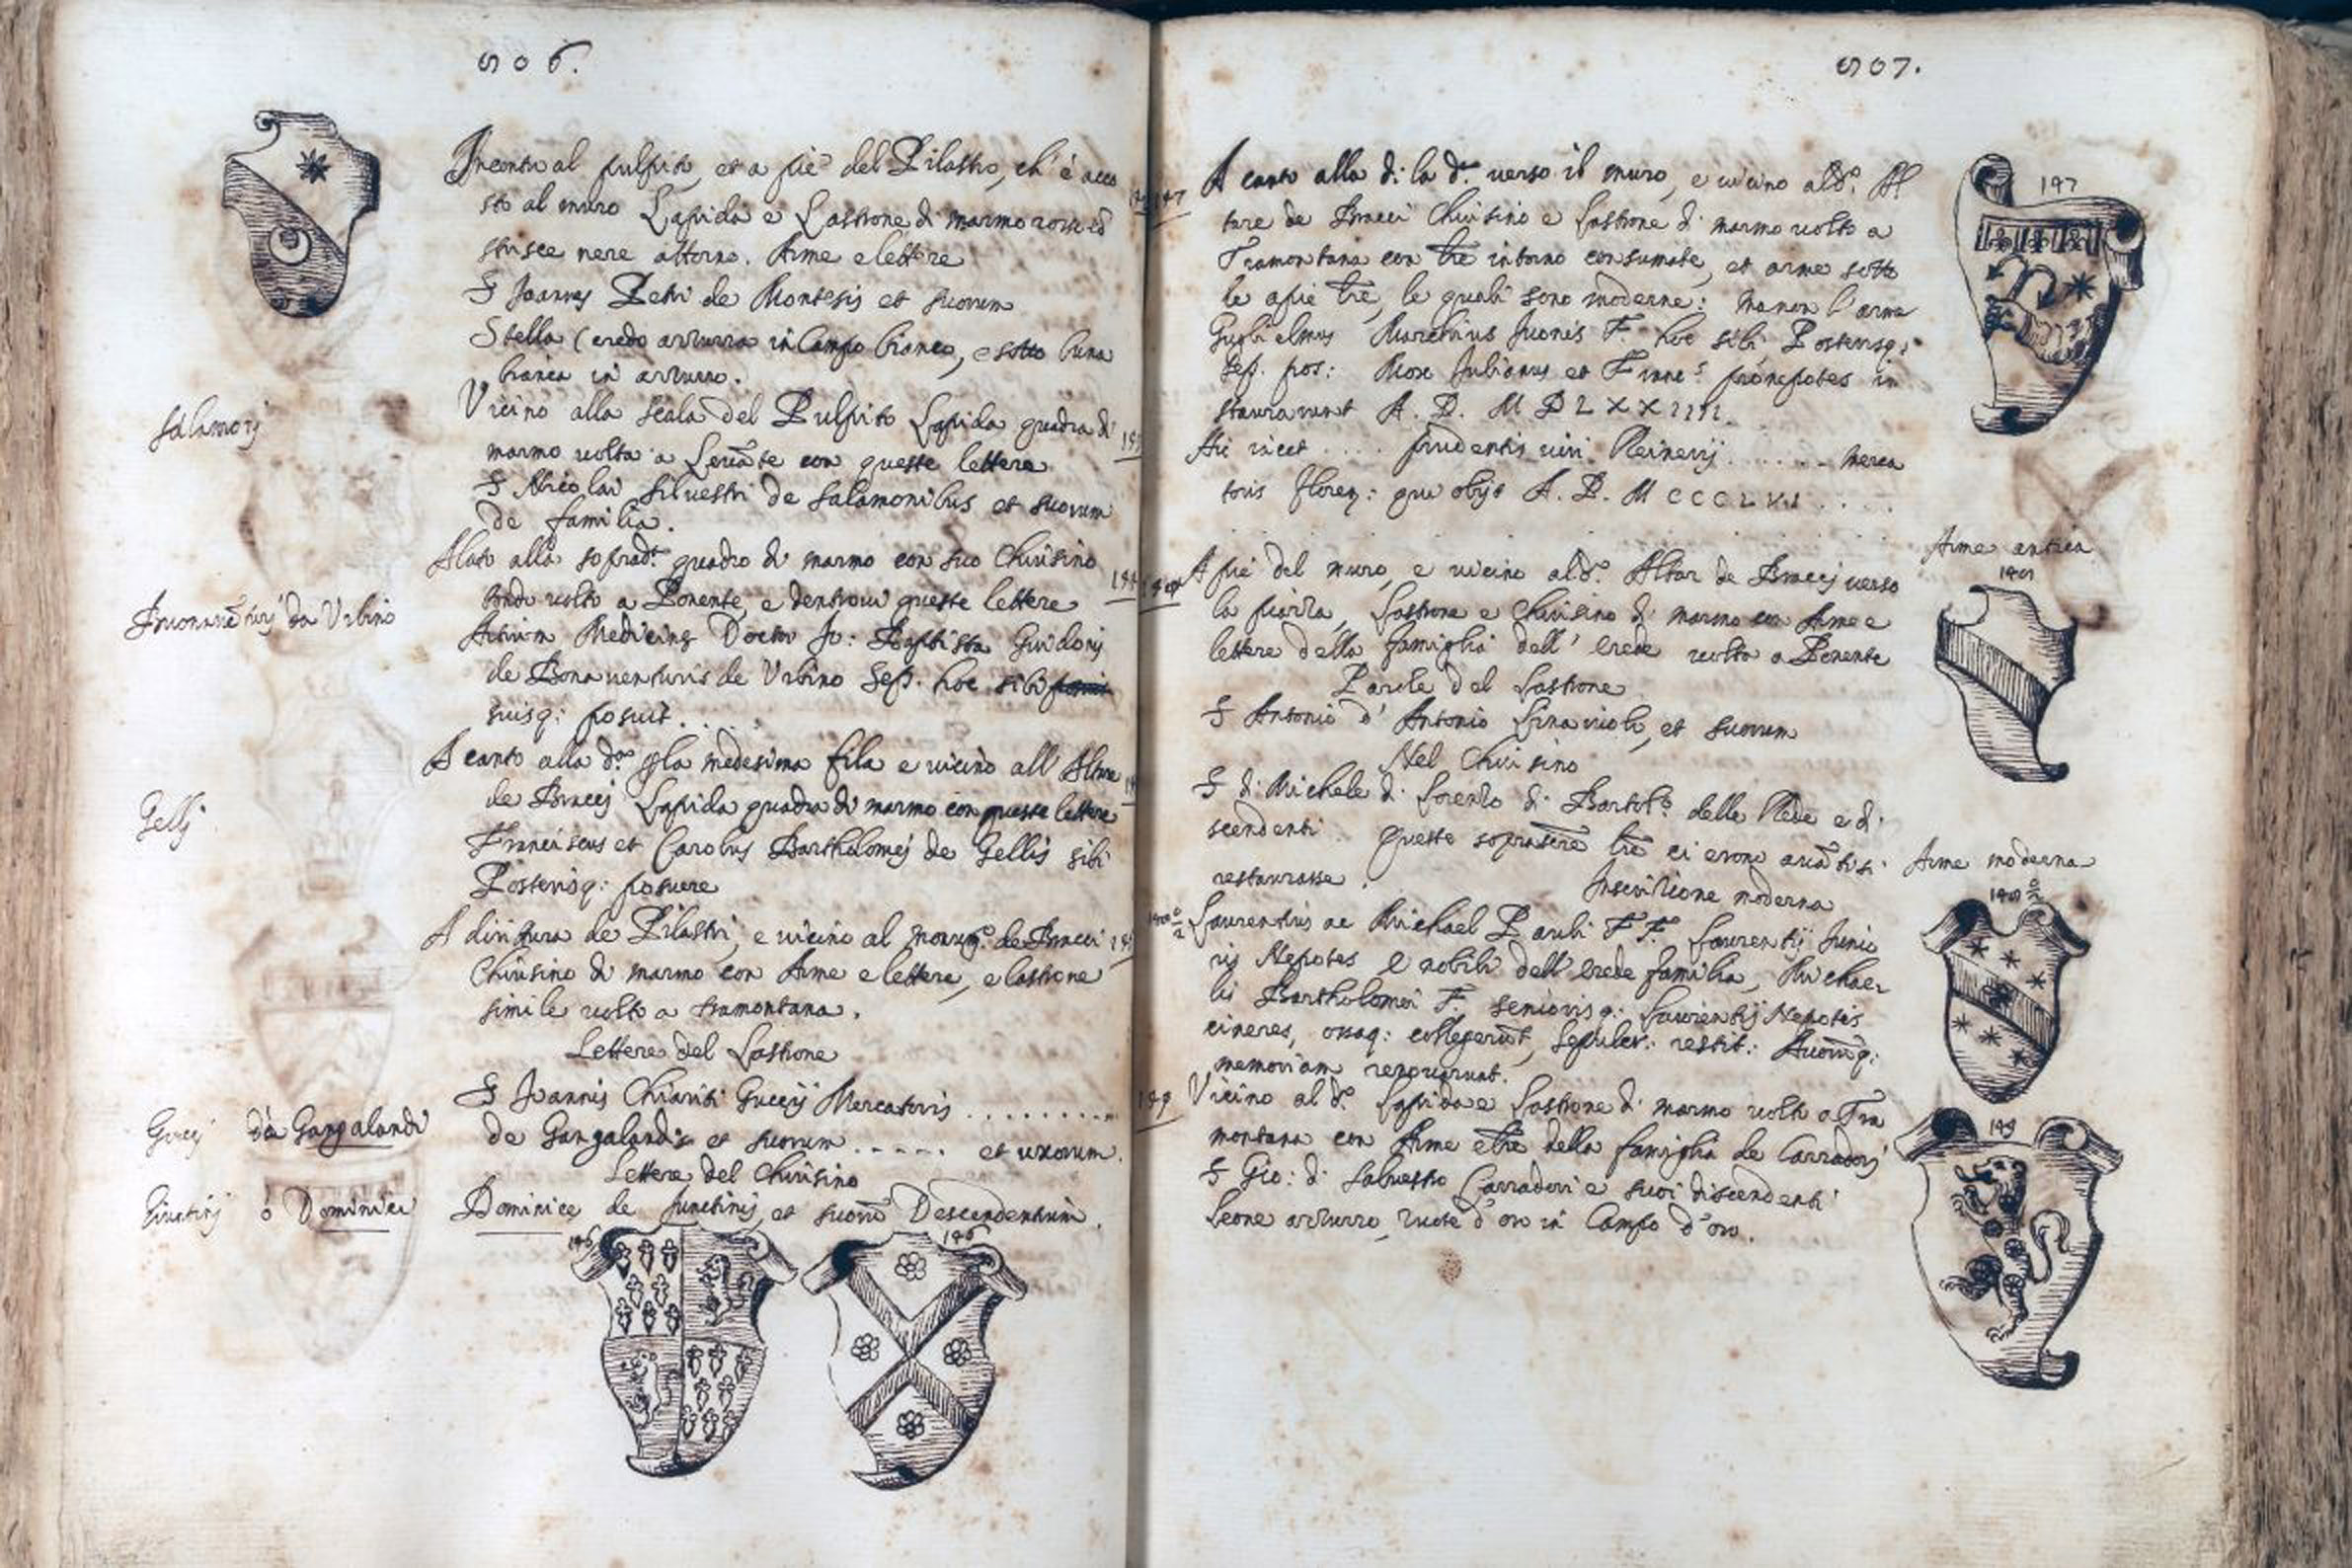 506.
Incontro al pulpito, et a pie del Pilastro, ch'è acco
sto al muro Lapida e Lastrone di marmo rosso ed
strisce nere attorno. Arme e lettere
S Joannis Petri de Montesis et suorum
Stella (credo azzurra in Campo bianco, e sotto luna
bianca in azzurro.
Salamonj
Vicino alla scala del Pulpito Lapida quadra di
marmo volta a Levāte con queste lettere
S Nicolai Silvestri de Salamonibus et suorum
de familia.
Buonavēturj da Urbino
Alato alla soprad.ª quadro di marmo con suo Chiusino
tondo volto a Ponente, e dentrovi queste lettere
Artium Medicinę Doctor Jo: Baptista Guidonis
de Bonaventuris de Urbino Sep. hoc sibi
suisq: posuit.
Gellj
A canto alla d.ª
la medesima fila e vicino all'Altare
de Braccj Lapida quadra di marmo con queste lettere
Franciscus et Carolus Bartholomej de Gellis sibi
Posterisq: posuere
A dirittura de Pilastri, e vicino al de Bracci
Chiusino di marmo con Arme e lettere, e lastrone
simile volto a tramontana.
Lettere del Lastrone
Guccj da Gangalandi
S Joannis Chiariti Guccij Mercatoris ..........
de Gangalandis et suorum ..... et uxorum.
Lettere del Chiusino
Giuntinj ò Dominici
Dominice de Junctinis, et suorū Descendentium.
146 146
507.
147
A canto alla di là d.ª verso il muro, e vicino al d.º Al
tare de Bracci Chiusino e Lastrone di marmo volto a
Tramontana con lr̃e intorno consumate, et arme sotto
le a pie lr̃e, le quali sono moderne: ma non l'arme
Guglielmus Juonis F. hoc sibi Posterisq:
Sep. pos: Mox Julianus et Franc.s pronepotes in
staurarunt A. D. M D L X X IIII.
Hic iacet .... prudentis viri Reinerij ...... merca
toris floreñ: qui obijt A. D. M CCCLVI ....
147
148
A pie del muro, e vicino al d.º Altar de Braccj verso
la piazza, Lastrone e Chiusino di marmo con Arme e
lettere della famiglia dell'Erede volto a Ponente
Parole del Lastrone
S Antonio d'Antonio Linaiuoli, et suorum
Nel Chiusino
S di Michele di Lorenzo di Bartol.º delle Rede e di
scendenti. Queste soprascr̃e lr̃e ci erono avāti si
restaurasse.
Arme antica
148
Inscrizione moderna
Laurentius ac Michael Pauli F F. Laurentij Junio
ris Nepotes e nobili dell'Erede familia, Michae-
lis Bartholomei F. seniorisq: Laurentij Nepotis
cineres, ossaq: collegerūt, Sepulcr: restit: Auorūq:
memoriam renovarunt.
Arme moderna
149
Vicino al d.º Lapida e Lastrone di marmo volto a Tra
montana con Arme e lr̃e della famiglia de Carradorj
S Gio: di Salvestro Carradori e suoi discendenti
Leone azzurro, ruote d'oro in Campo d'oro.
149